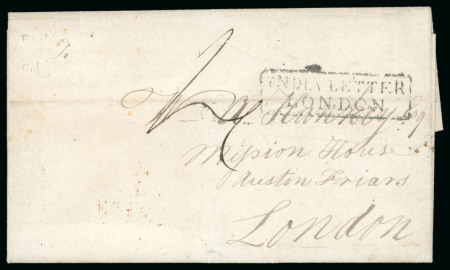 To
INDIA LETTER
LONDON
W. Hankey Esq
Mission House
Austin Friars
London